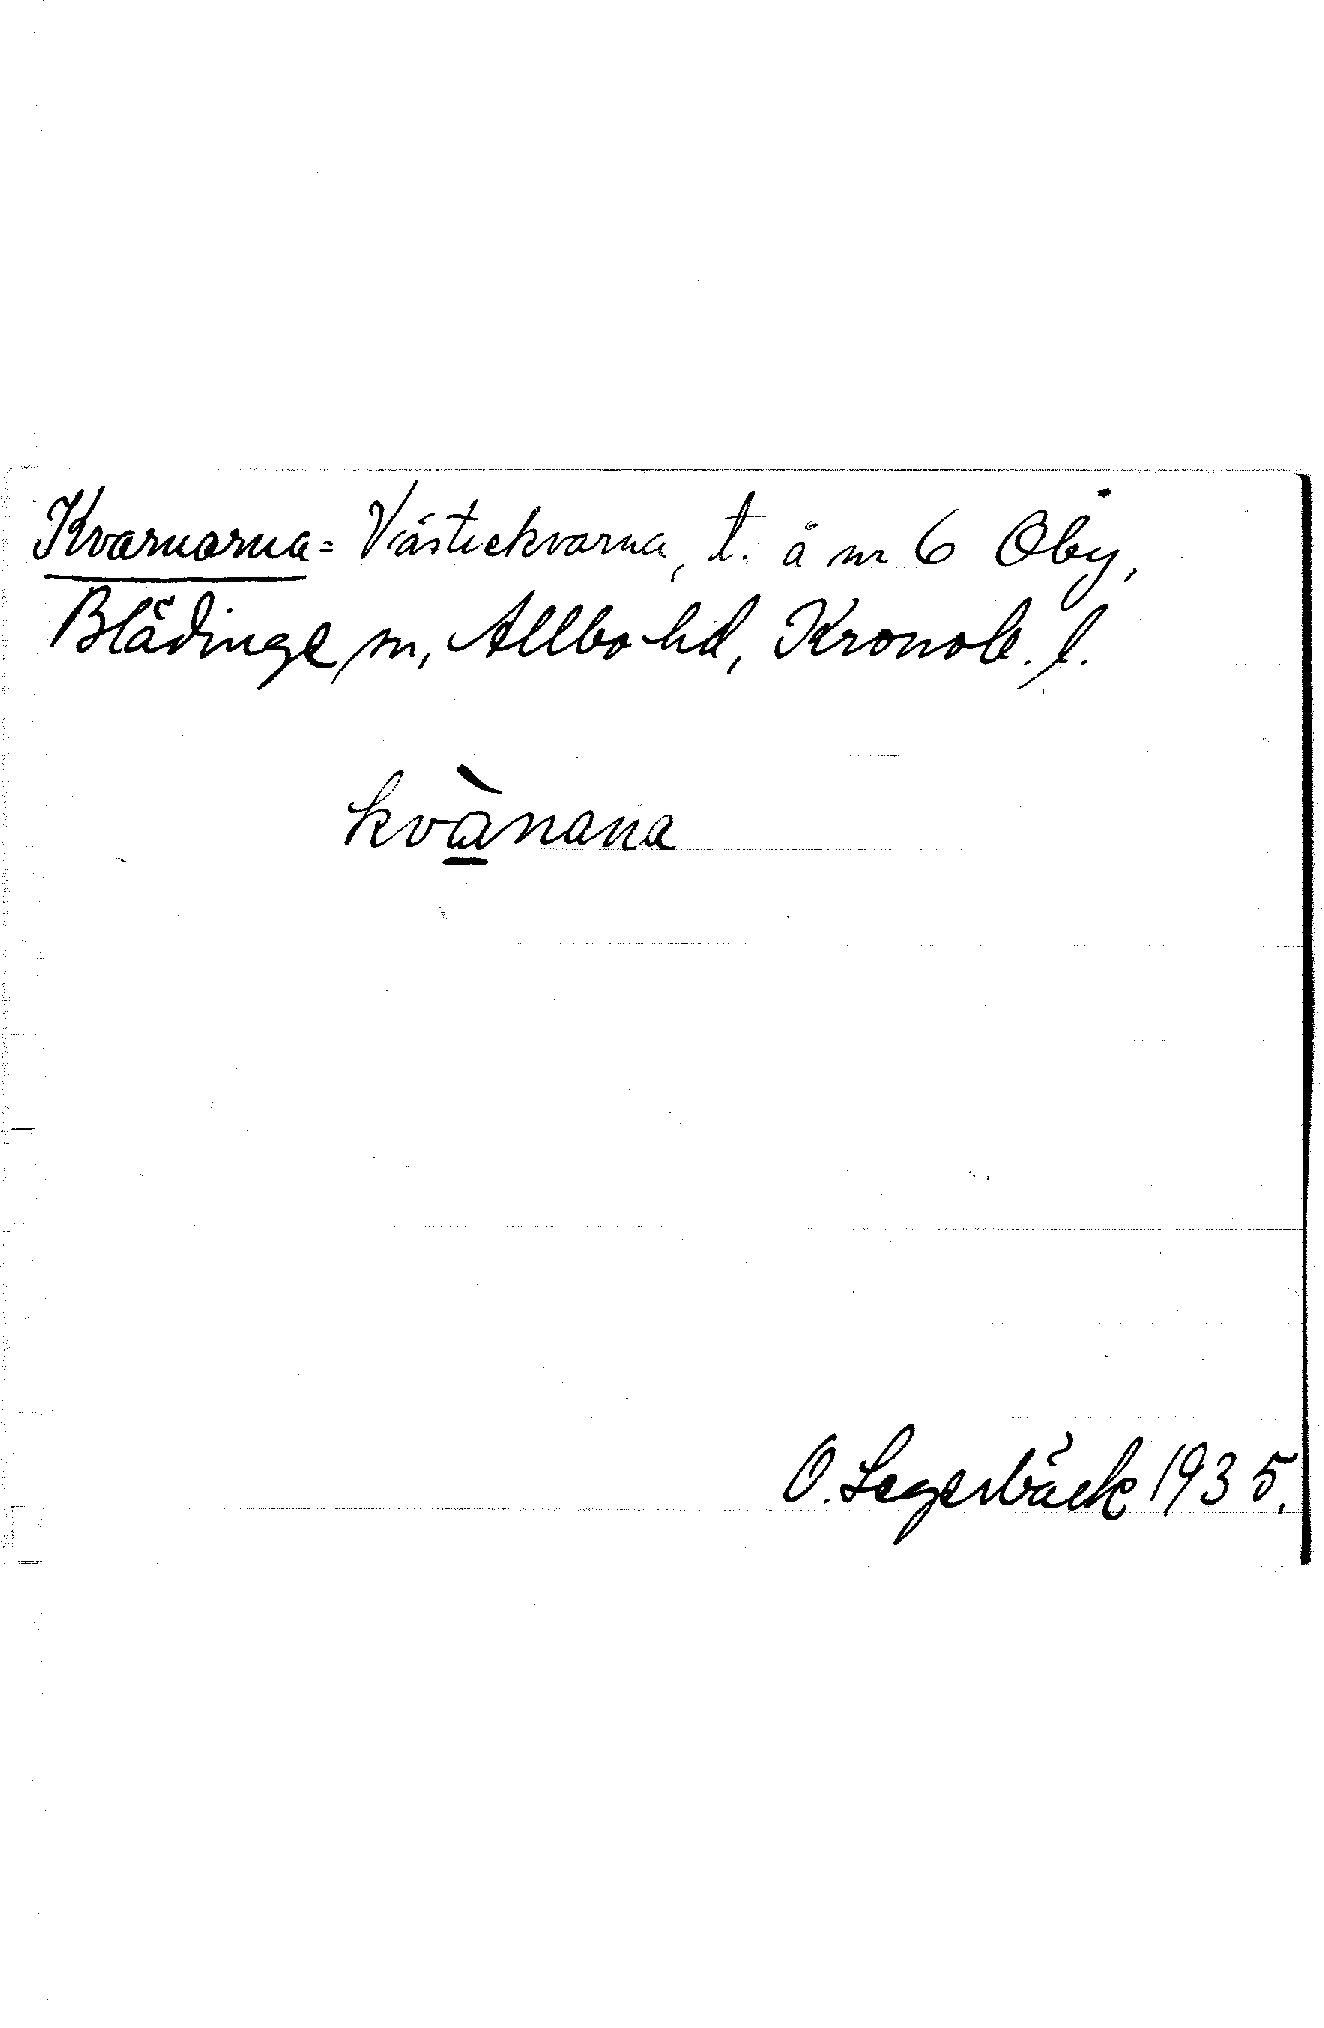 Kvarnarna = Västrekvarna, t. å nr 6 Öby,
Blädinge sn, Allbo hd, Kronob. l.
kvànana
O. Lagerbäck 1935.